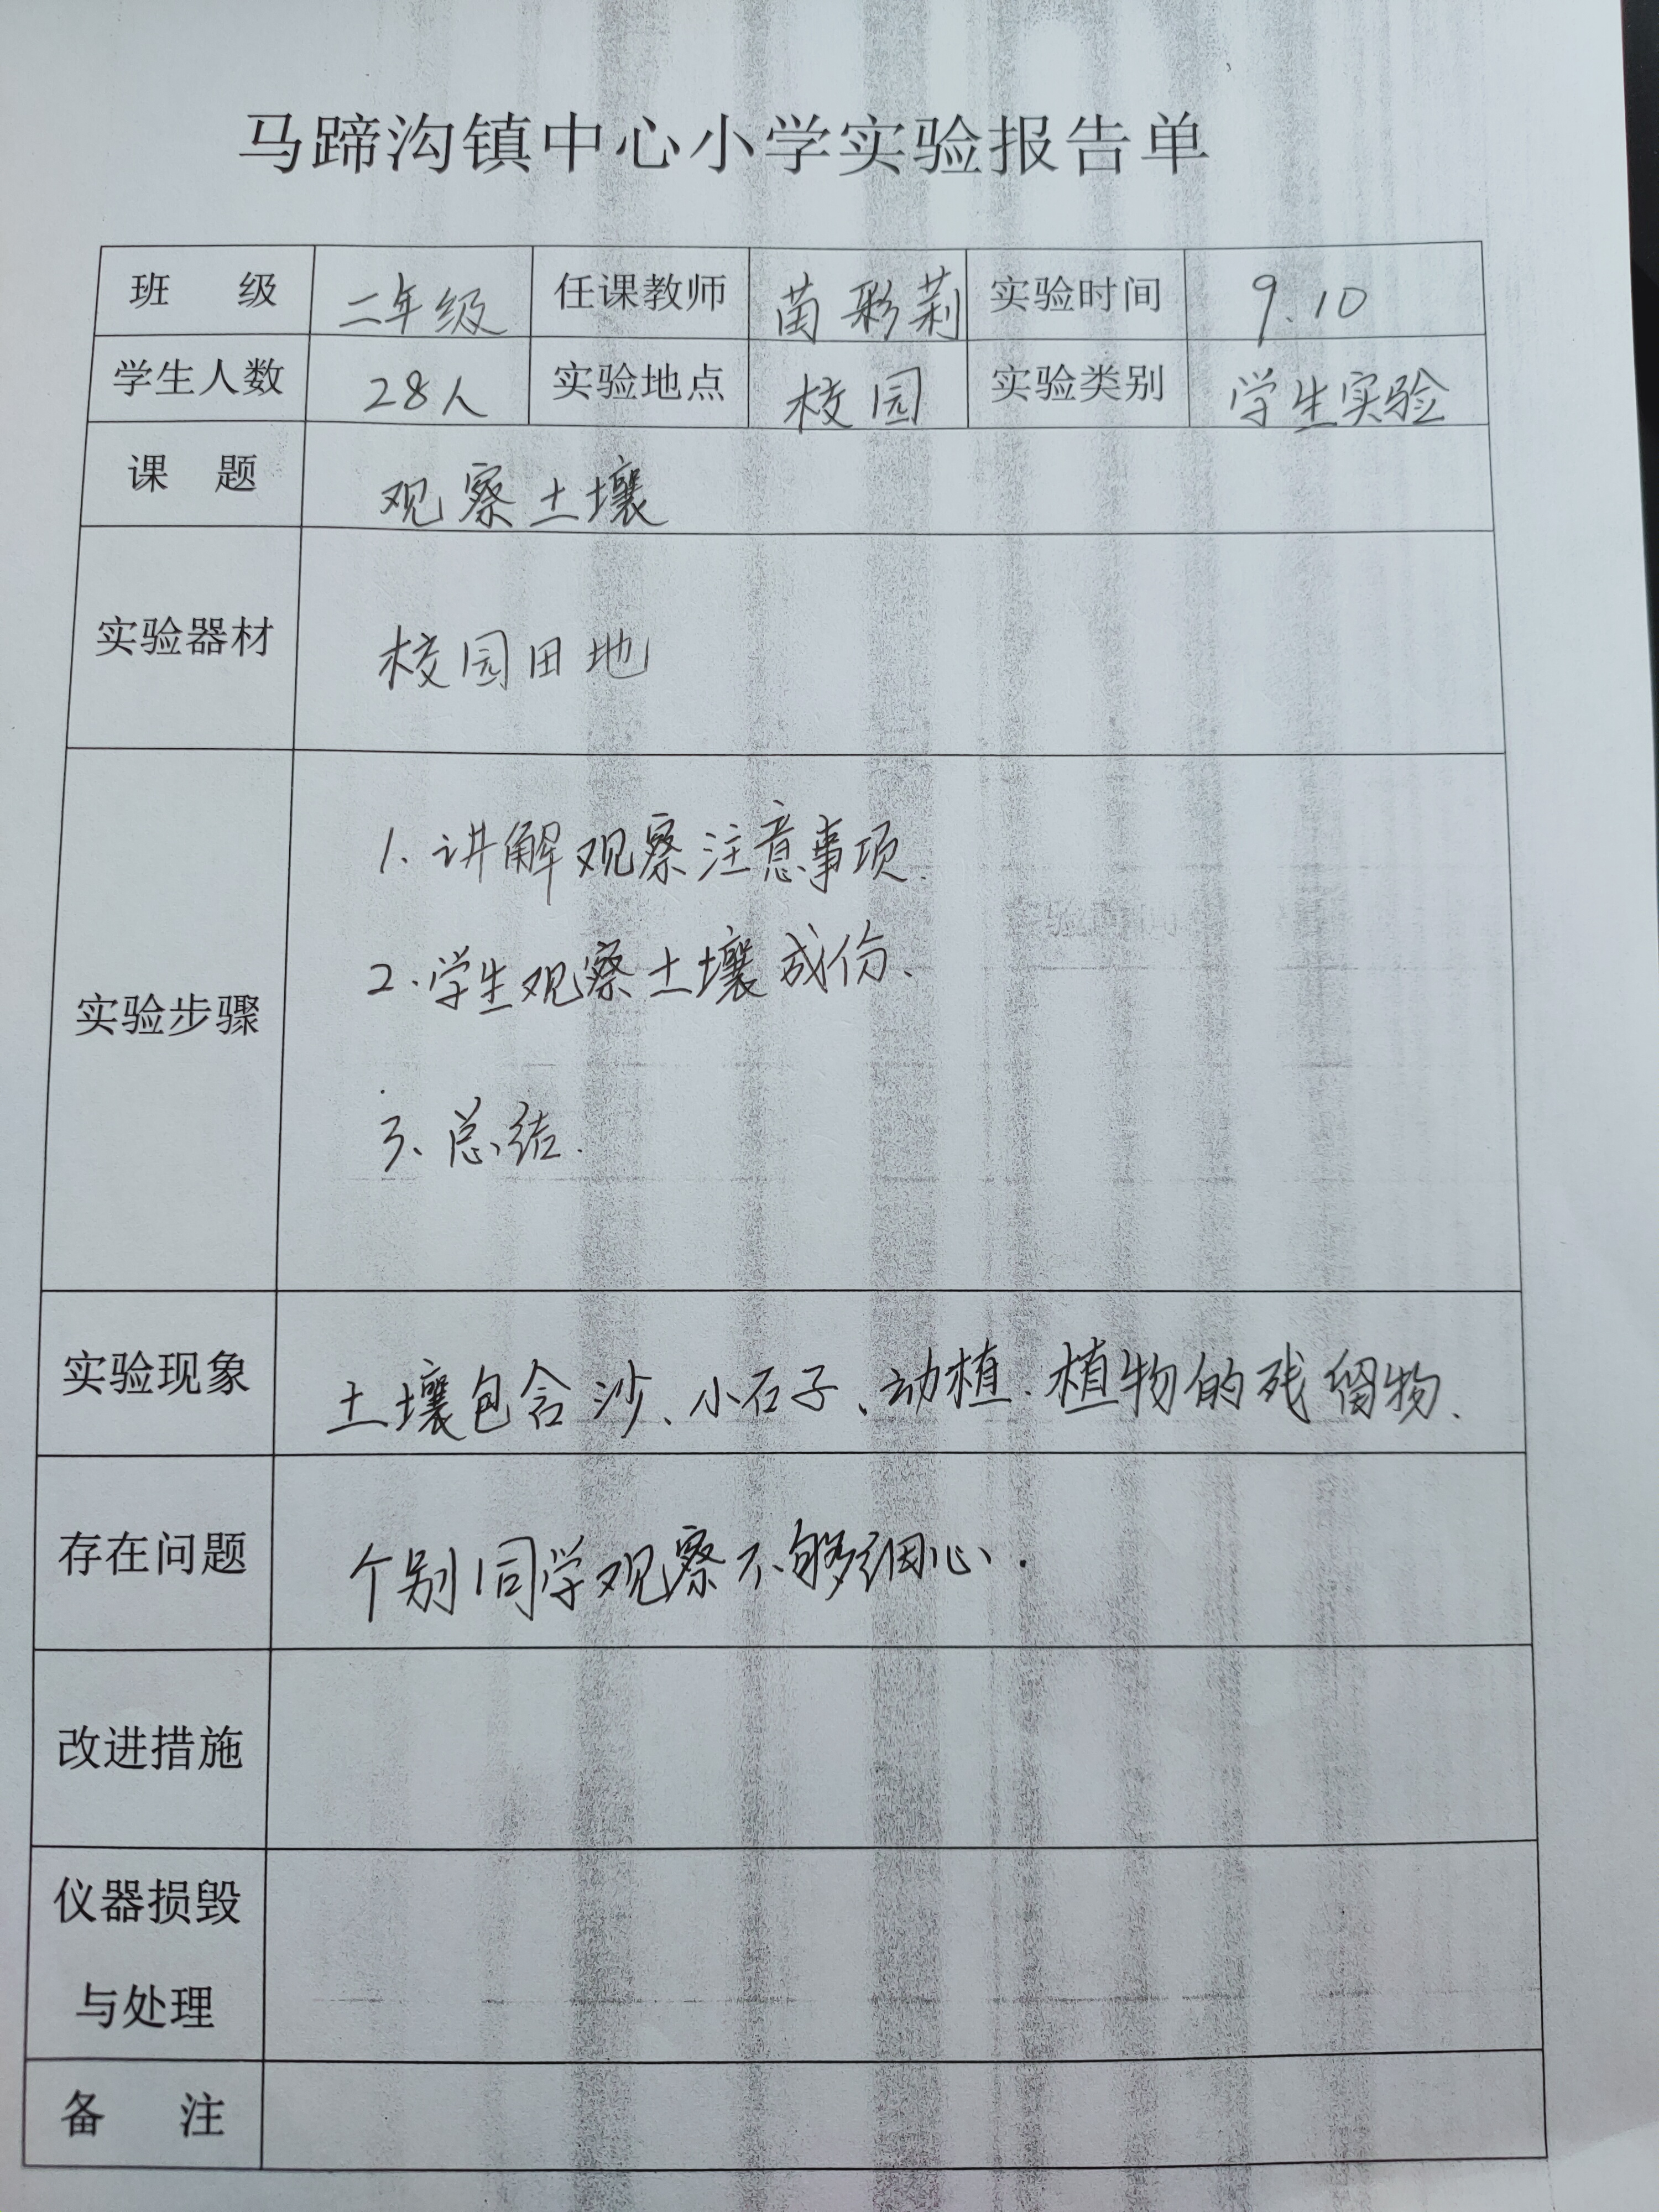 马蹄沟镇中心小学实验报告单
班 级 二年级 任课教师 苗彩莉 实验时间 9.10
学生人数 28人 实验地点 校园 实验类别 学生实验
课 题 观察土壤
实验器材 校园田地
实验步骤
1. 讲解观察注意事项.
2. 学生观察土壤成份、
3、总结.
实验现象 土壤包含沙、小石子、动植、植物的残留物、
存在问题 个别同学观察不够细心.
改进措施
仪器损毁
与处理
备 注